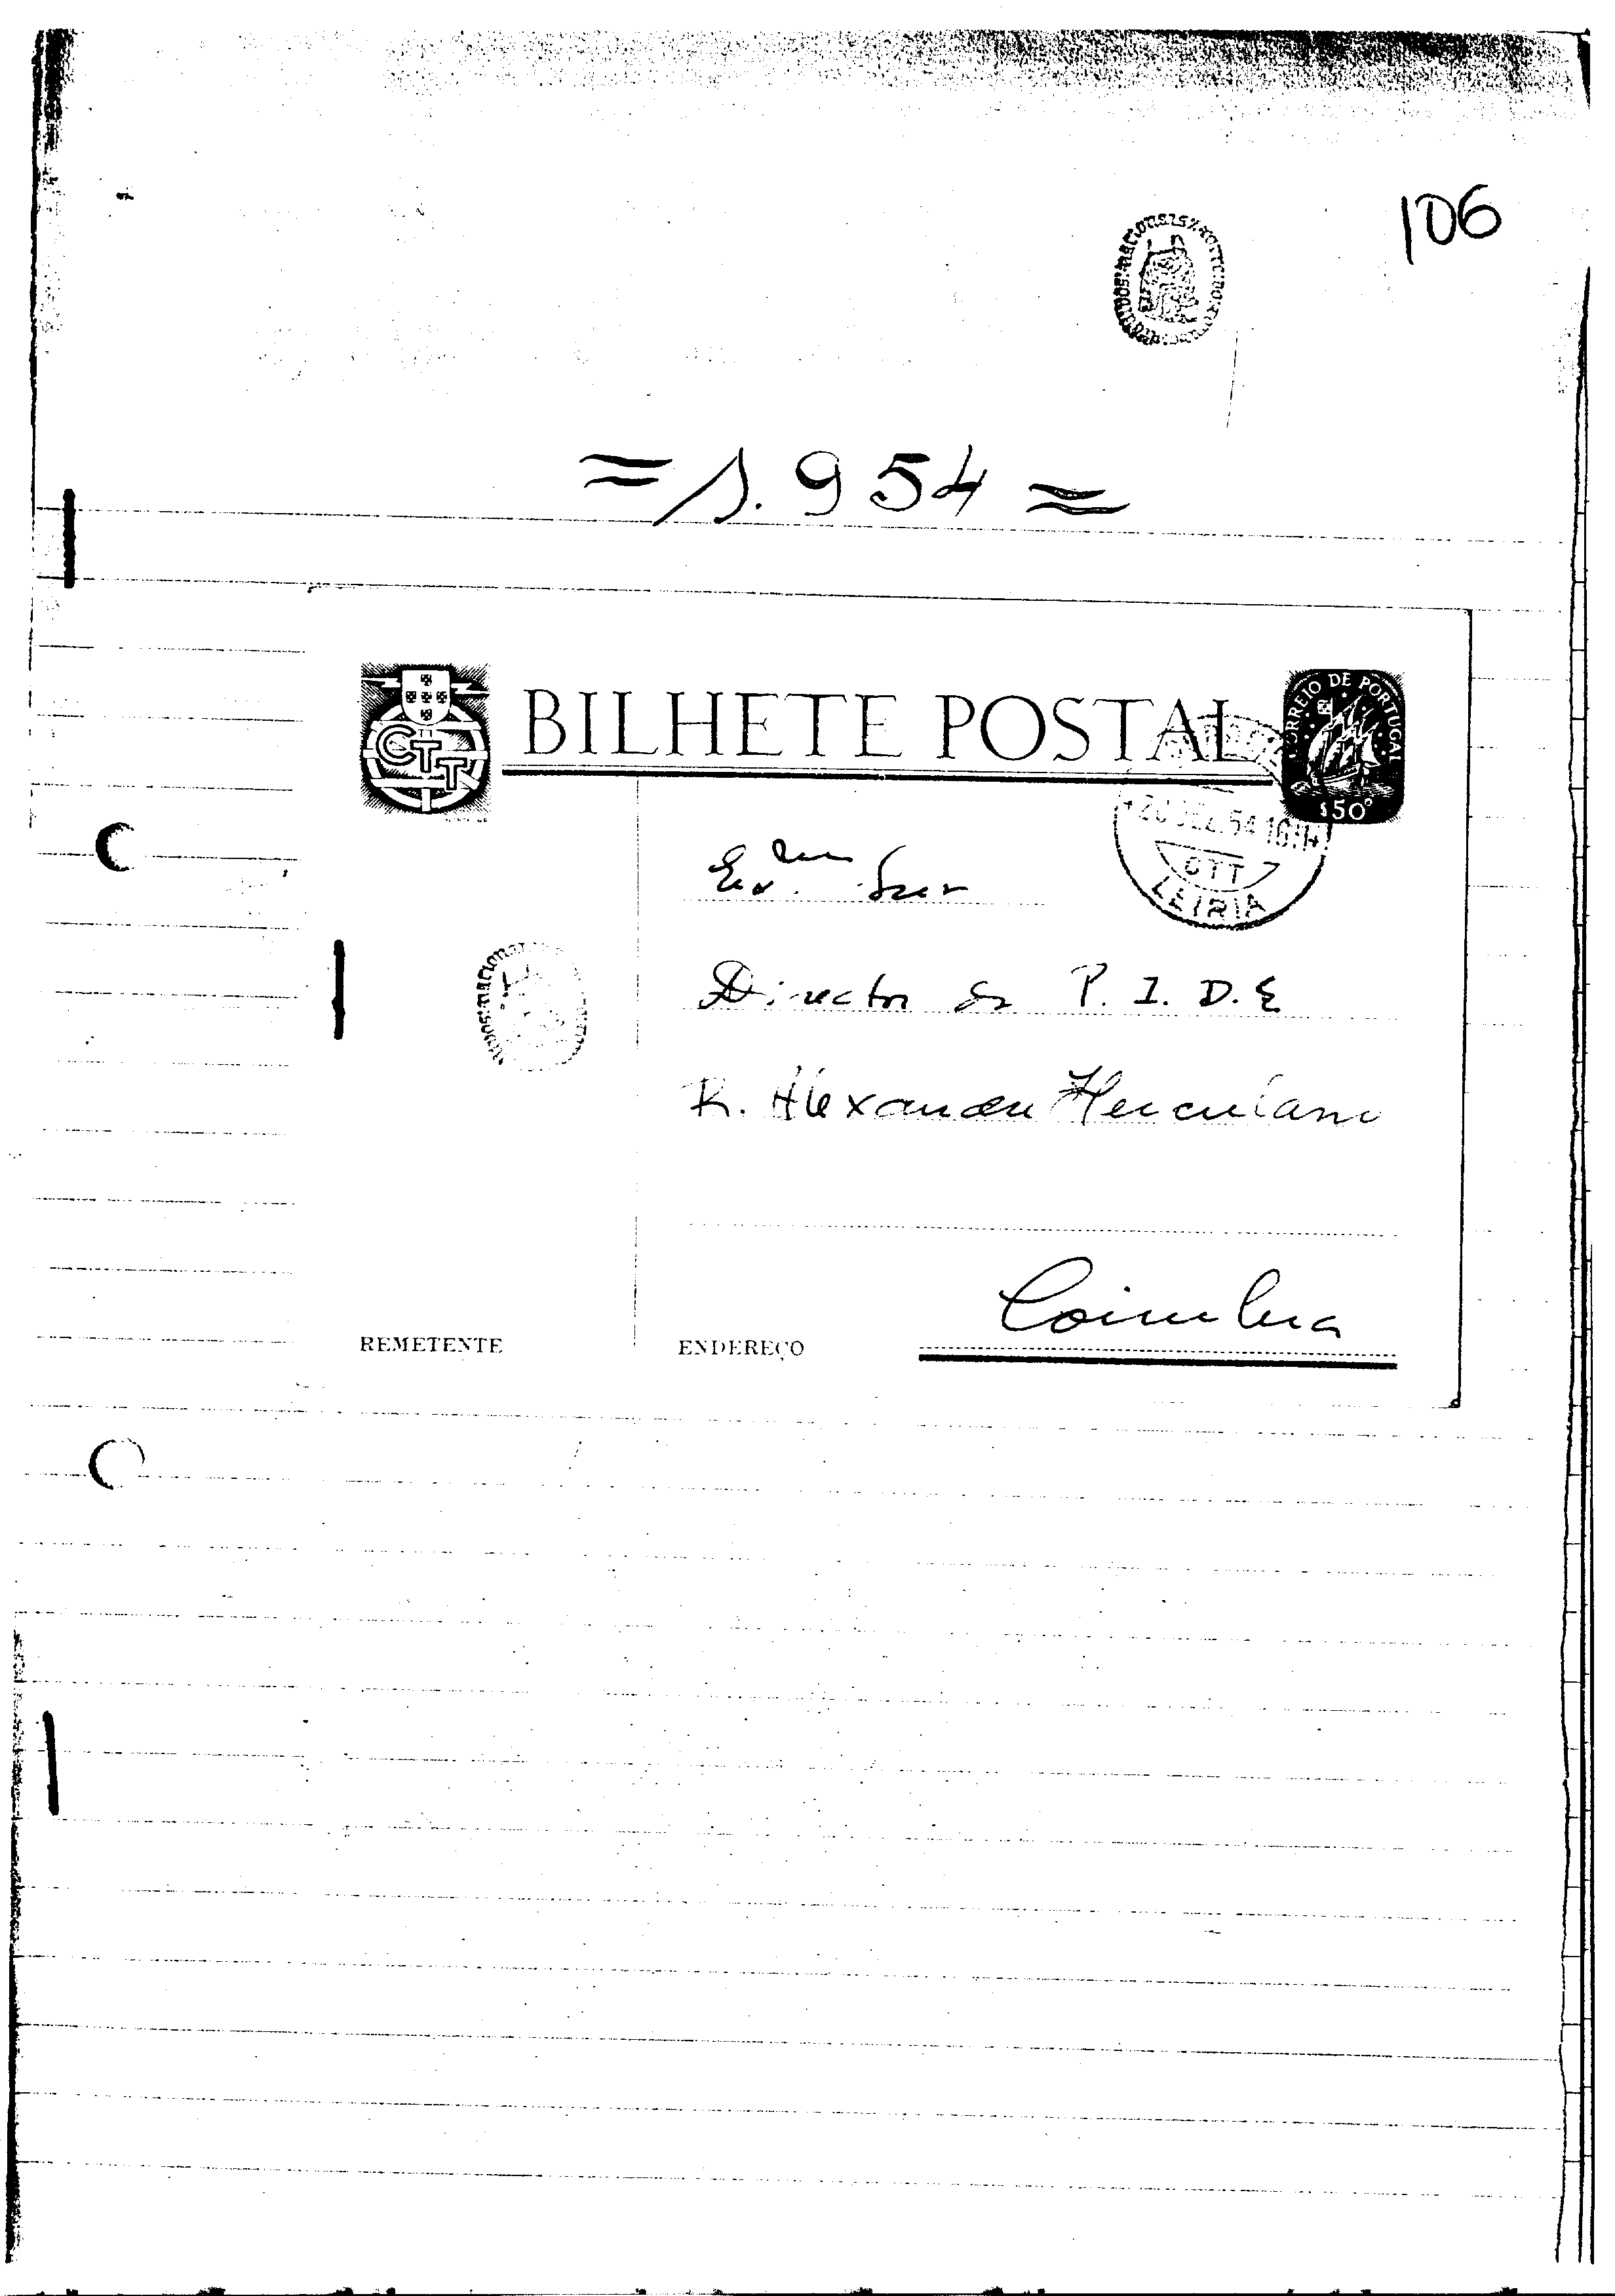 106
= 1.954 =
CTT
BILHETE POSTAL
CORREIO DE PORTUGAL
$50
54
CTT
LEIRIA
Ex.mo Snr
Director da P. I. D. E
R. Alexandre Herculano
Coimbra
REMETENTE
ENDEREÇO